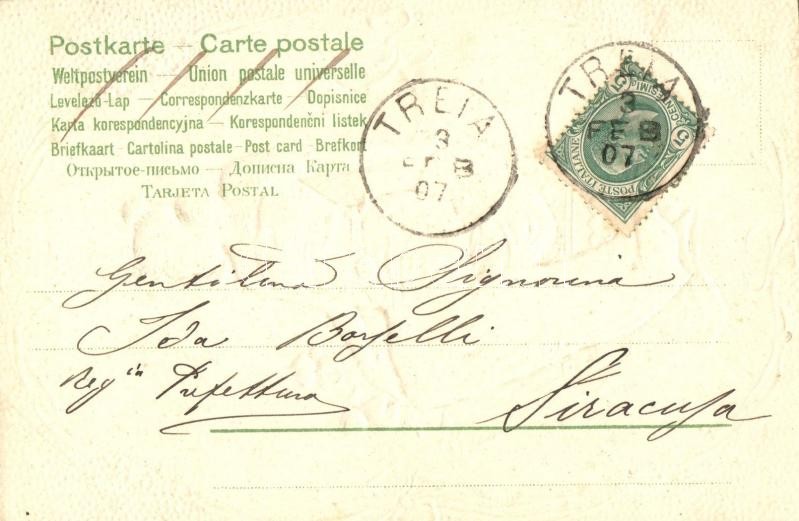 Postkarte — Carte postale
Weltpostverein — Union postale universelle
Levelező-Lap — Correspondenzkarte — Dopisnice
Karta korespondencyjna — Korespondenční lístek
Briefkaart - Cartolina postale - Post card - Brefkort
Открытое-письмо — Дописна Карта
Tarjeta Postal
TREIA
3
FEB
07
TREIA
3
FEB
07
POSTE ITALIANE
CENTESIMI 5
Gentilma Signorina
Ida Borselli
Regia Prefettura
Siracusa